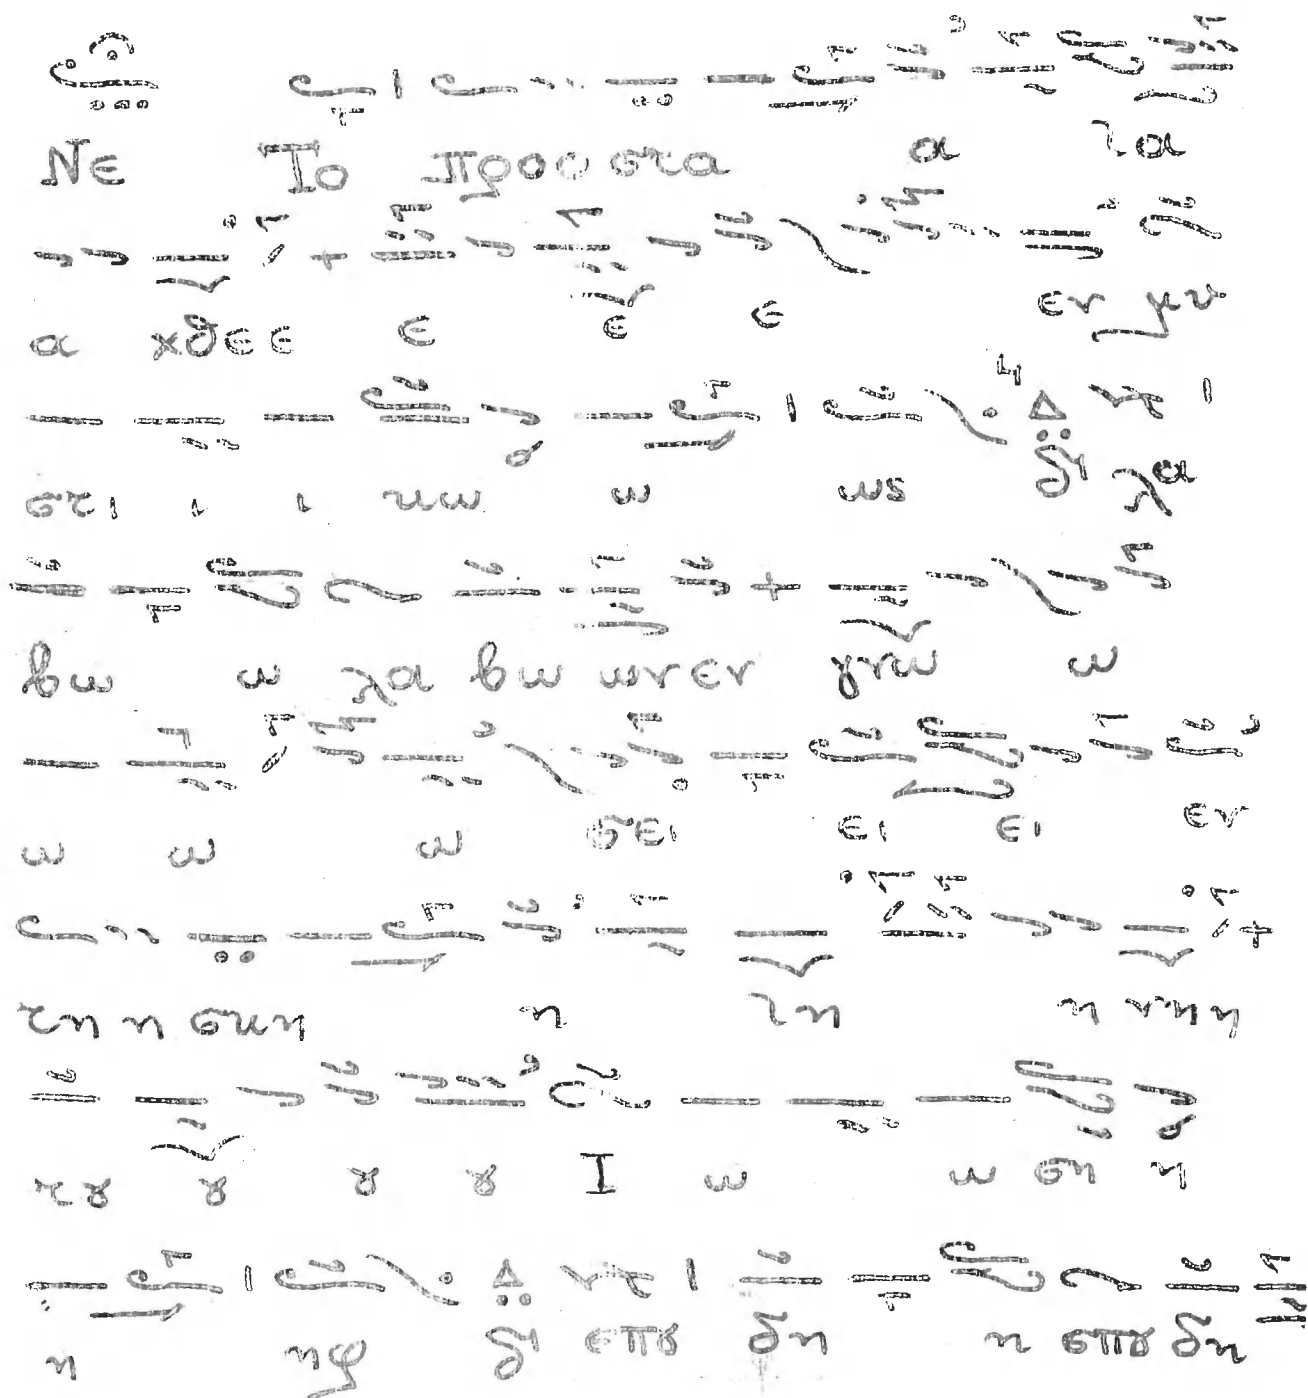 Νε Το προο στα α τα
α χθεε ε ε ε εν μυ
στι ι ι κω ω ως δι λα
βω ω λα βω ων εν γνω ω
ω ω ω σει ει ει εν
τη η σκη η τη η νη η
τȣ ȣ ȣ ȣ Ι ω ω ση η
η ηφ δι σπȣ δη η σπȣ δη